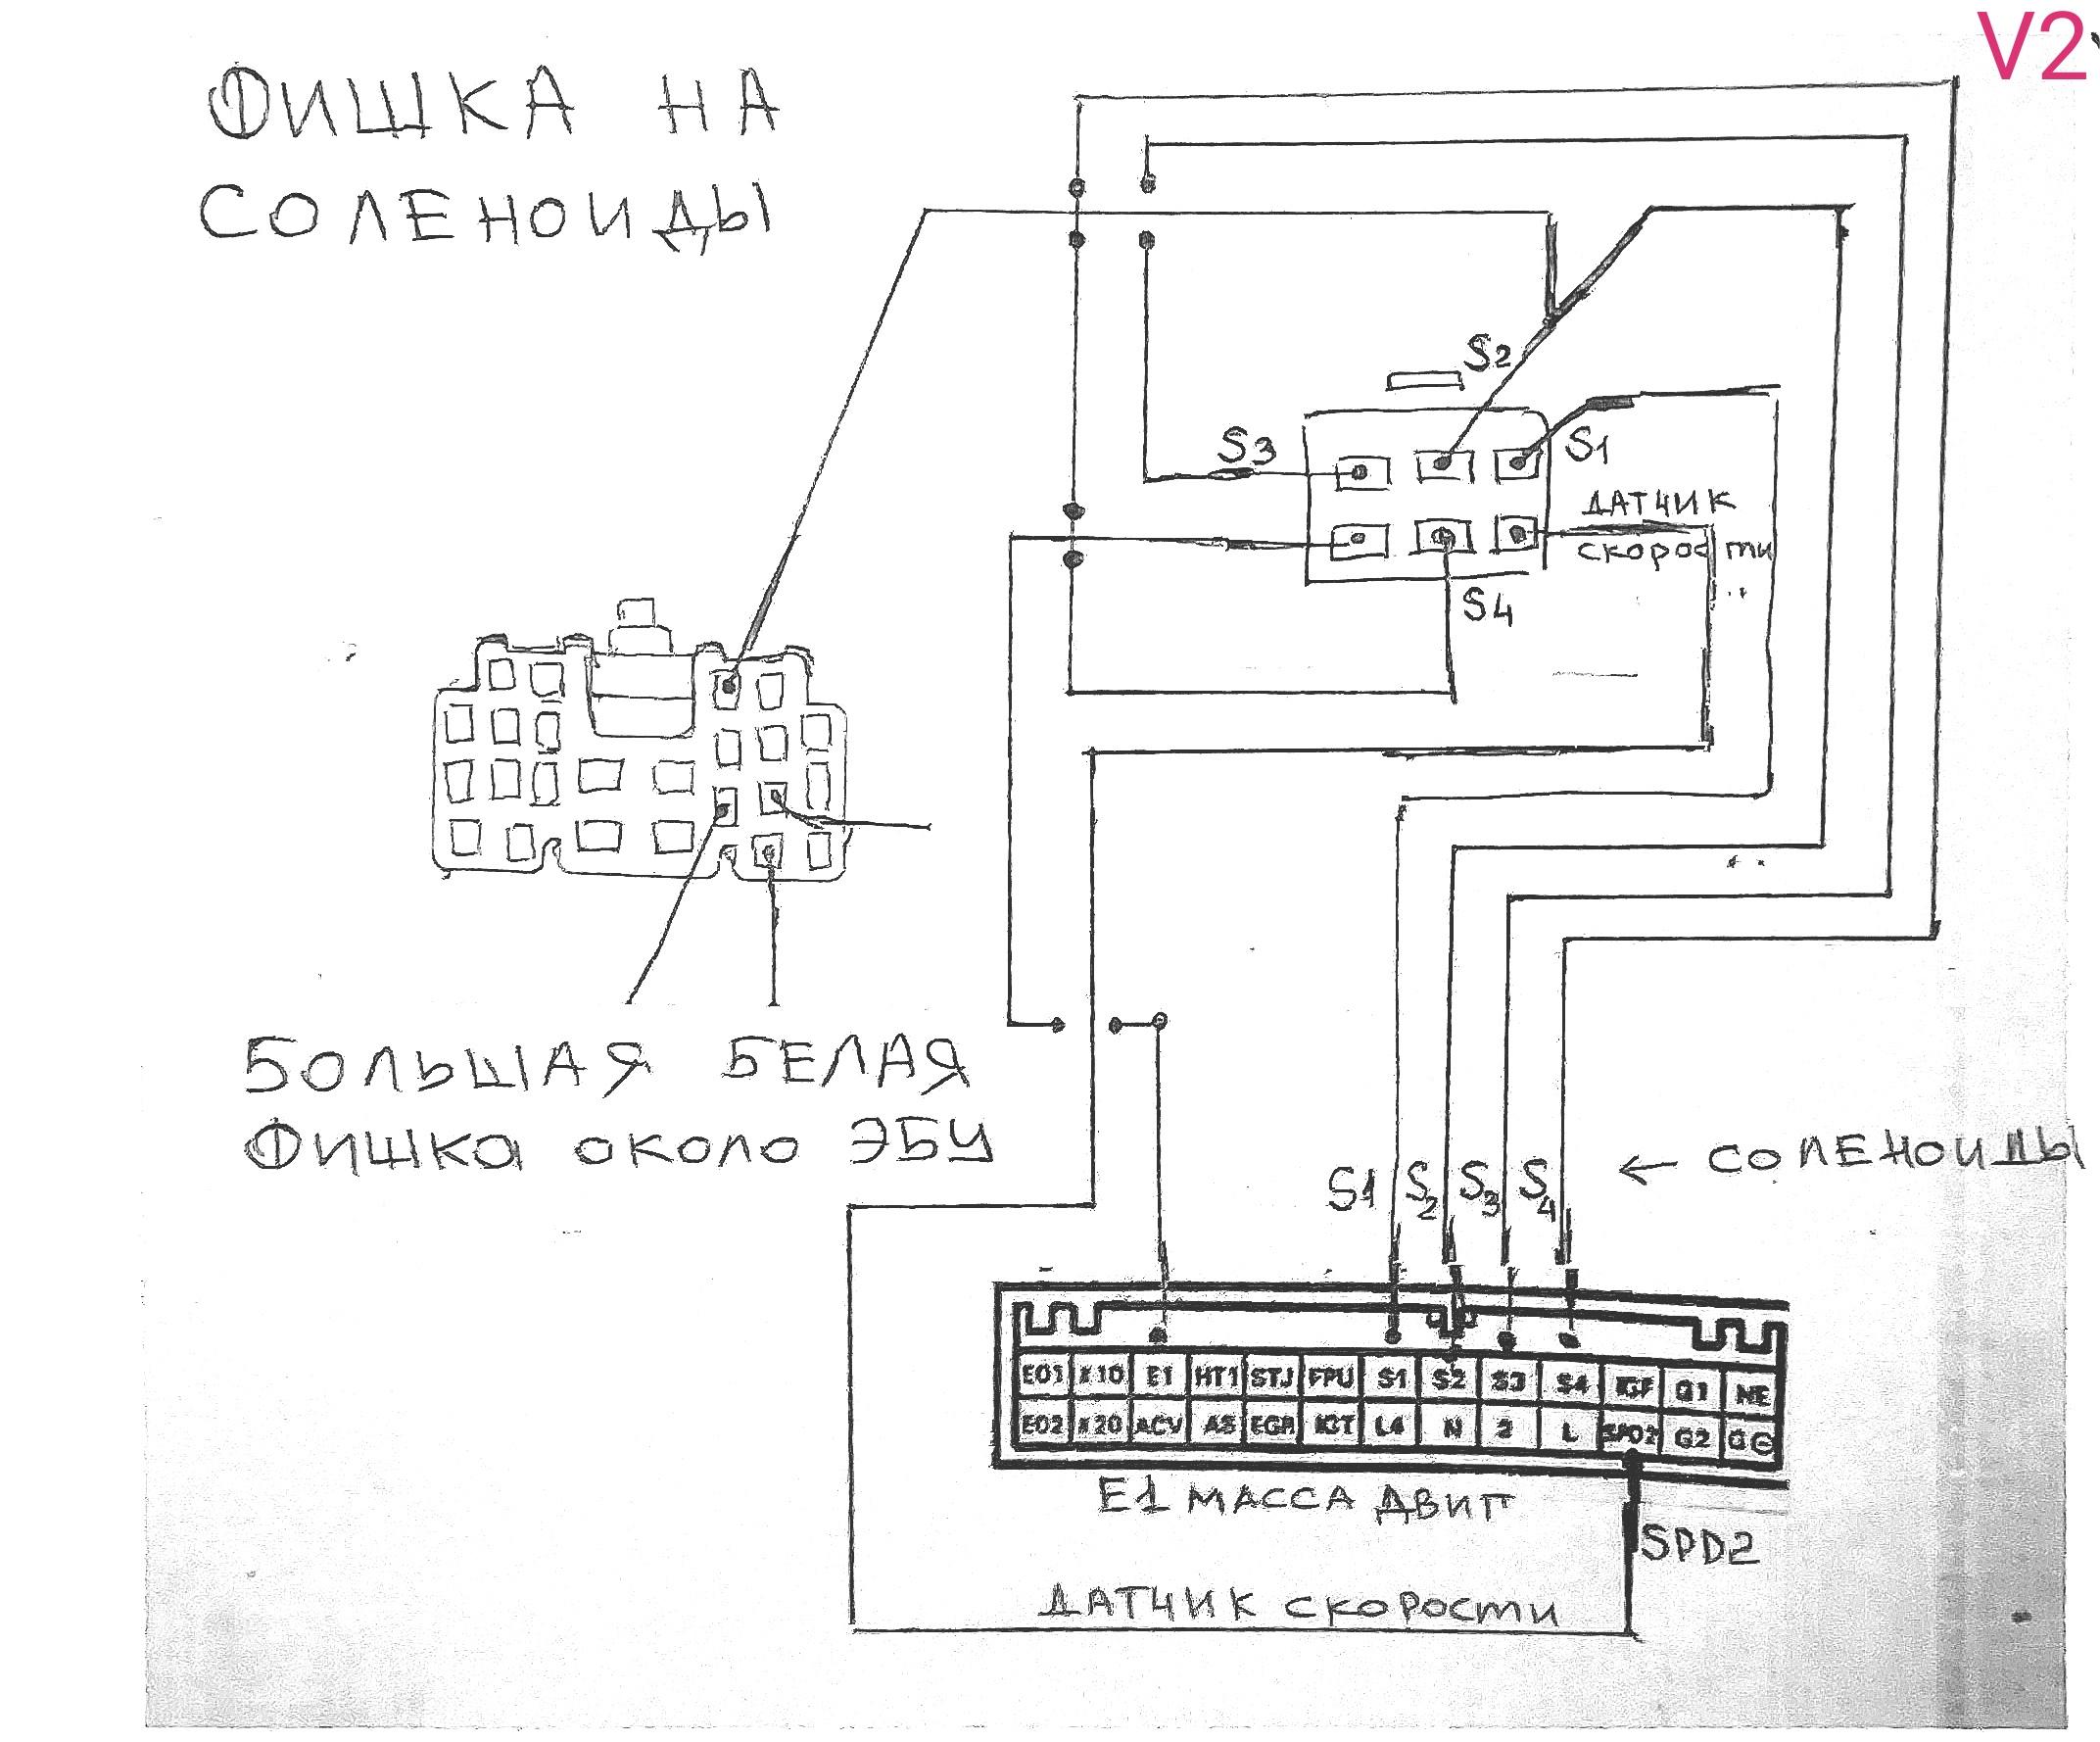 V2
ФИШКА НА
СОЛЕНОИДЫ
S2
S3
S1
ДАТЧИК
скорости
S4
БОЛЬШАЯ БЕЛАЯ
ФИШКА около ЭБУ
S1 S2 S3 S4 ← СОЛЕНОИДЫ
E01 #10 E1 HT1 STJ FPU S1 S2 S3 S4 IGF G1 NE
E02 #20 ACV AS EGR IGT L4 N 2 L SPD2 G2 G⊖
E1 МАССА ДВИГ
SPD2
ДАТЧИК скорости